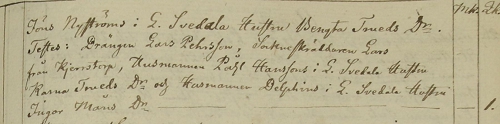 Jöns Nyströms i L. Svedala Hustru Bengta Trueds Dr.
Testes: Drängen Lars Pehrsson, Lars
från Hjernstorp, Husmannen Påhl Hanssons i L. Svedala Hustru
Karna Trueds Dr och Husmannen Delphins i L. Svedala Hustru
Inger Måns Dr
1.